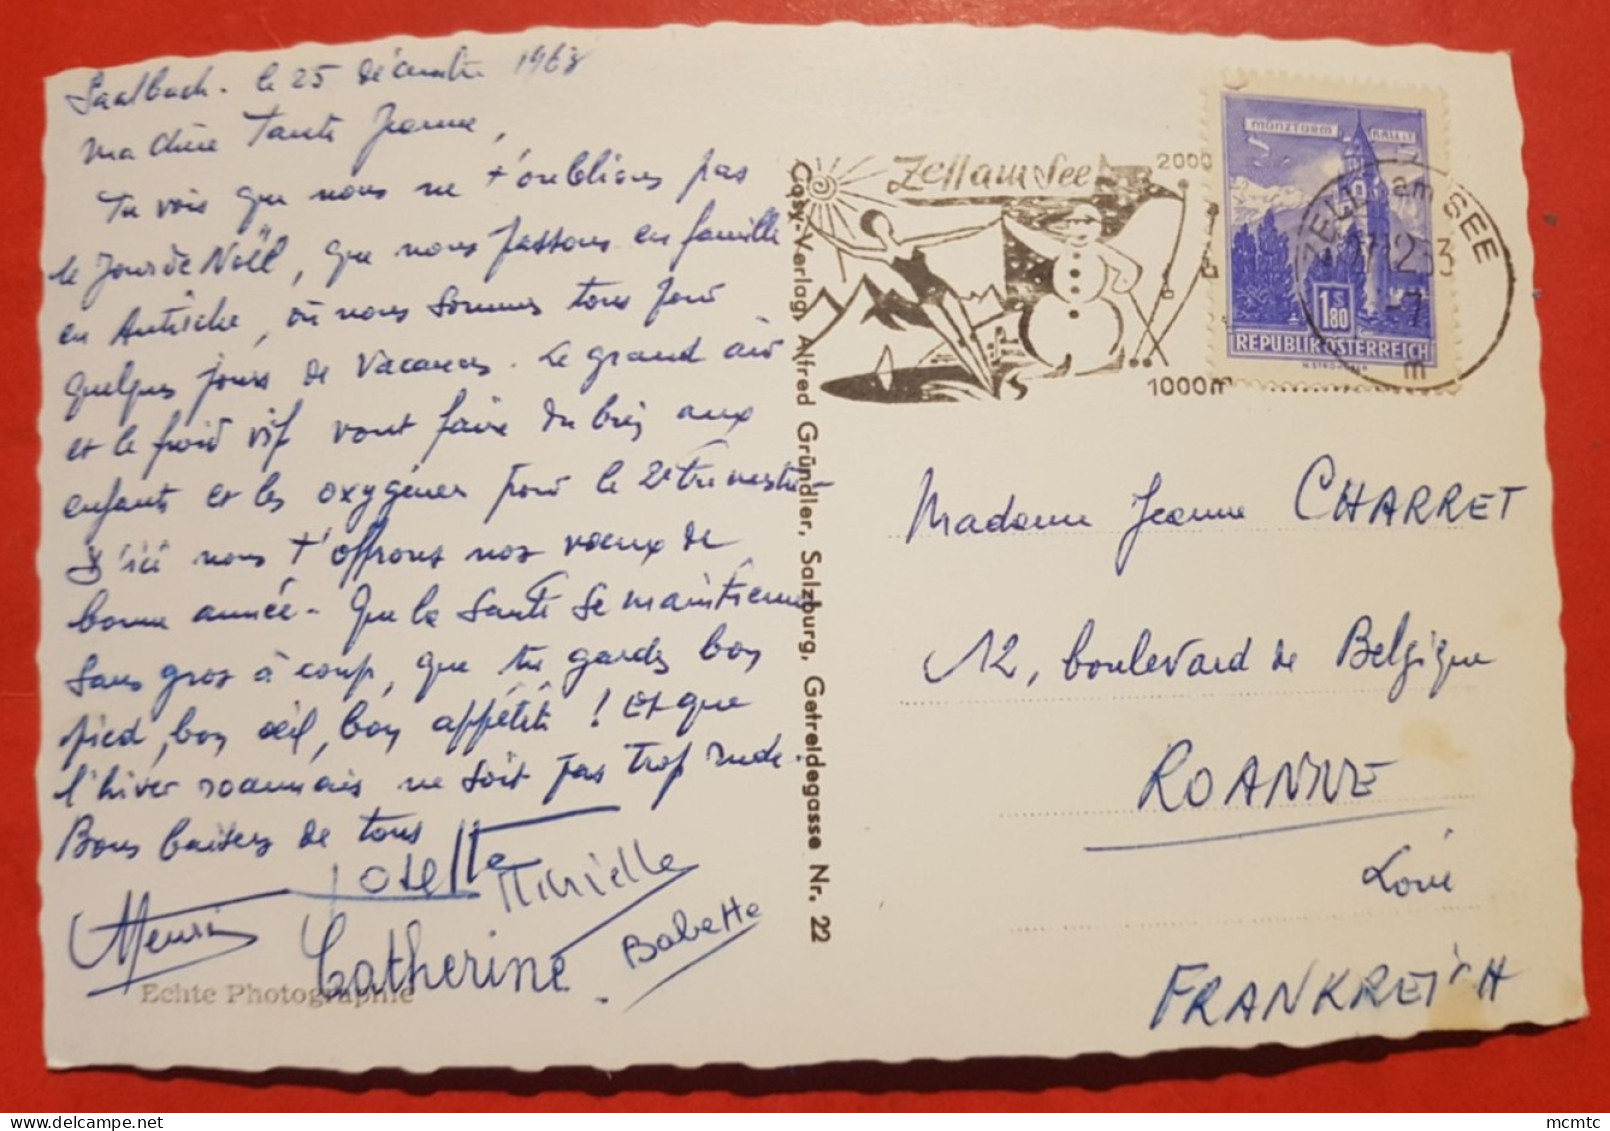 Saalbach. le 25 décembre 1963
Ma chère Tante Jeanne,
Tu vois que nous ne t'oublions pas
le jour de Noël, que nous passons en famille
en Autriche, où nous sommes tous pour
quelques jours de vacances. Le grand air
et le froid vif vont faire du bien aux
enfants et les oxygéner pour le 2e trimestre -
D'ici nous t'offrons nos voeux de
bonne année - Que la santé se maintienne
sans gros à coup, que tu gardes bon
pied, bon oeil, bon appétit ! Et que
l'hiver roannais ne soit pas trop rude.
Bons baisers de tous
Josette
Murielle
Henri
Catherine.
Babette
Echte Photographie
Cosy-Verlag, Alfred Gründler, Salzburg, Getreidegasse Nr. 22
Zell am See
2000
1000m
ZELL am SEE
27.12.63
-7
m
MÜNZTURM HALL i.T.
1.80 S
REPUBLIK ÖSTERREICH
Madame Jeanne CHARRET
12, boulevard de Belgique
ROANNE
Loire
FRANKREICH
mcmtc